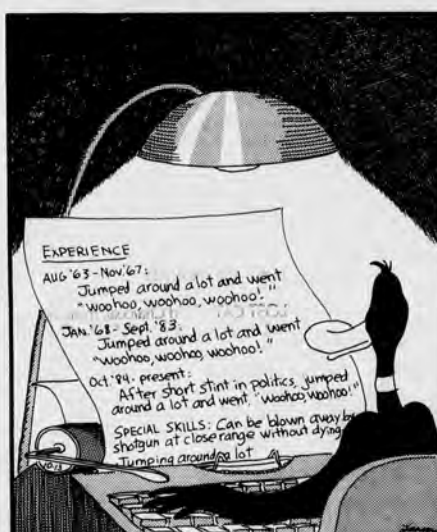 EXPERIENCE
AUG '63 - Nov. '67:
Jumped around a lot and went
"woohoo, woohoo, woohoo!"
JAN. '68 - Sept. '83:
Jumped around a lot and went
"woohoo, woohoo, woohoo!"
Oct. '84 - present:
After short stint in politics, jumped
around a lot and went, "woohoo, woohoo!"
SPECIAL SKILLS: Can be blown away by
shotgun at close range without dying
Jumping around a lot